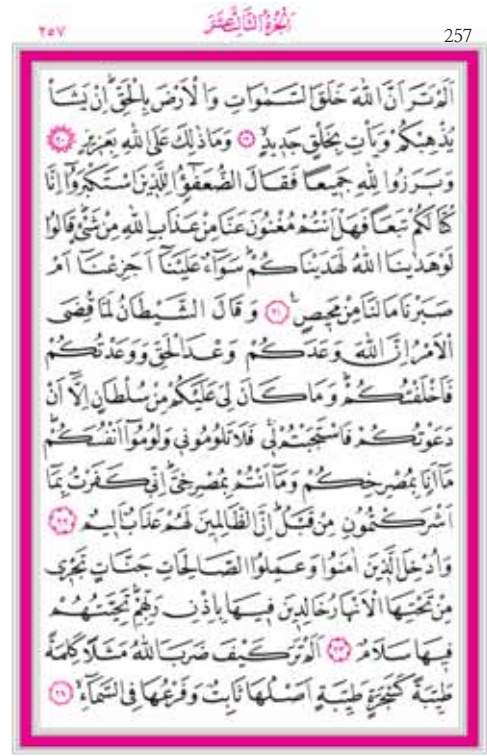 ٢٥٧
اَلْجُزْءُ الثَّالِثَ عَشَرَ
257
اَلَمْ تَرَ اَنَّ اللّٰهَ خَلَقَ السَّمٰوَاتِ وَالْاَرْضَ بِالْحَقِّۜ اِنْ يَشَأْ
يُذْهِبْكُمْ وَيَأْتِ بِخَلْقٍ جَد۪يدٍۙ ﴿١٩﴾ وَمَا ذٰلِكَ عَلَى اللّٰهِ بِعَز۪يزٍ ﴿٢٠﴾
وَبَرَزُوا لِلّٰهِ جَم۪يعًا فَقَالَ الضُّعَفٰٓؤُا لِلَّذ۪ينَ اسْتَكْبَرُٓوا اِنَّا
كُنَّا لَكُمْ تَبَعًا فَهَلْ اَنْتُمْ مُغْنُونَ عَنَّا مِنْ عَذَابِ اللّٰهِ مِنْ شَيْءٍۜ قَالُوا
لَوْ هَدٰينَا اللّٰهُ لَهَدَيْنَاكُمْۜ سَوَٓاءٌ عَلَيْنَٓا اَجَزِعْنَٓا اَمْ
صَبَرْنَا مَا لَنَا مِنْ مَح۪يصٍ۟ ﴿٢١﴾ وَقَالَ الشَّيْطَانُ لَمَّا قُضِيَ
الْاَمْرُ اِنَّ اللّٰهَ وَعَدَكُمْ وَعْدَ الْحَقِّ وَوَعَدْتُكُمْ
فَاَخْلَفْتُكُمْۜ وَمَا كَانَ لِيَ عَلَيْكُمْ مِنْ سُلْطَانٍ اِلَّٓا اَنْ
دَعَوْتُكُمْ فَاسْتَجَبْتُمْ ل۪يۚ فَلَا تَلُومُون۪ي وَلُومُٓوا اَنْفُسَكُمْۜ
مَٓا اَنَا۬ بِمُصْرِخِكُمْ وَمَٓا اَنْتُمْ بِمُصْرِخِيَّۜ اِنّ۪ي كَفَرْتُ بِمَٓا
اَشْرَكْتُمُونِ مِنْ قَبْلُۜ اِنَّ الظَّالِم۪ينَ لَهُمْ عَذَابٌ اَل۪يمٌ ﴿٢٢﴾
وَاُدْخِلَ الَّذ۪ينَ اٰمَنُوا وَعَمِلُوا الصَّالِحَاتِ جَنَّاتٍ تَجْر۪ي
مِنْ تَحْتِهَا الْاَنْهَارُ خَالِد۪ينَ ف۪يهَا بِاِذْنِ رَبِّهِمْۜ تَحِيَّتُهُمْ
ف۪يهَا سَلَامٌ ﴿٢٣﴾ اَلَمْ تَرَ كَيْفَ ضَرَبَ اللّٰهُ مَثَلًا كَلِمَةً
طَيِّبَةً كَشَجَرَةٍ طَيِّبَةٍ اَصْلُهَا ثَابِتٌ وَفَرْعُهَا فِي السَّمَٓاءِۙ ﴿٢٤﴾